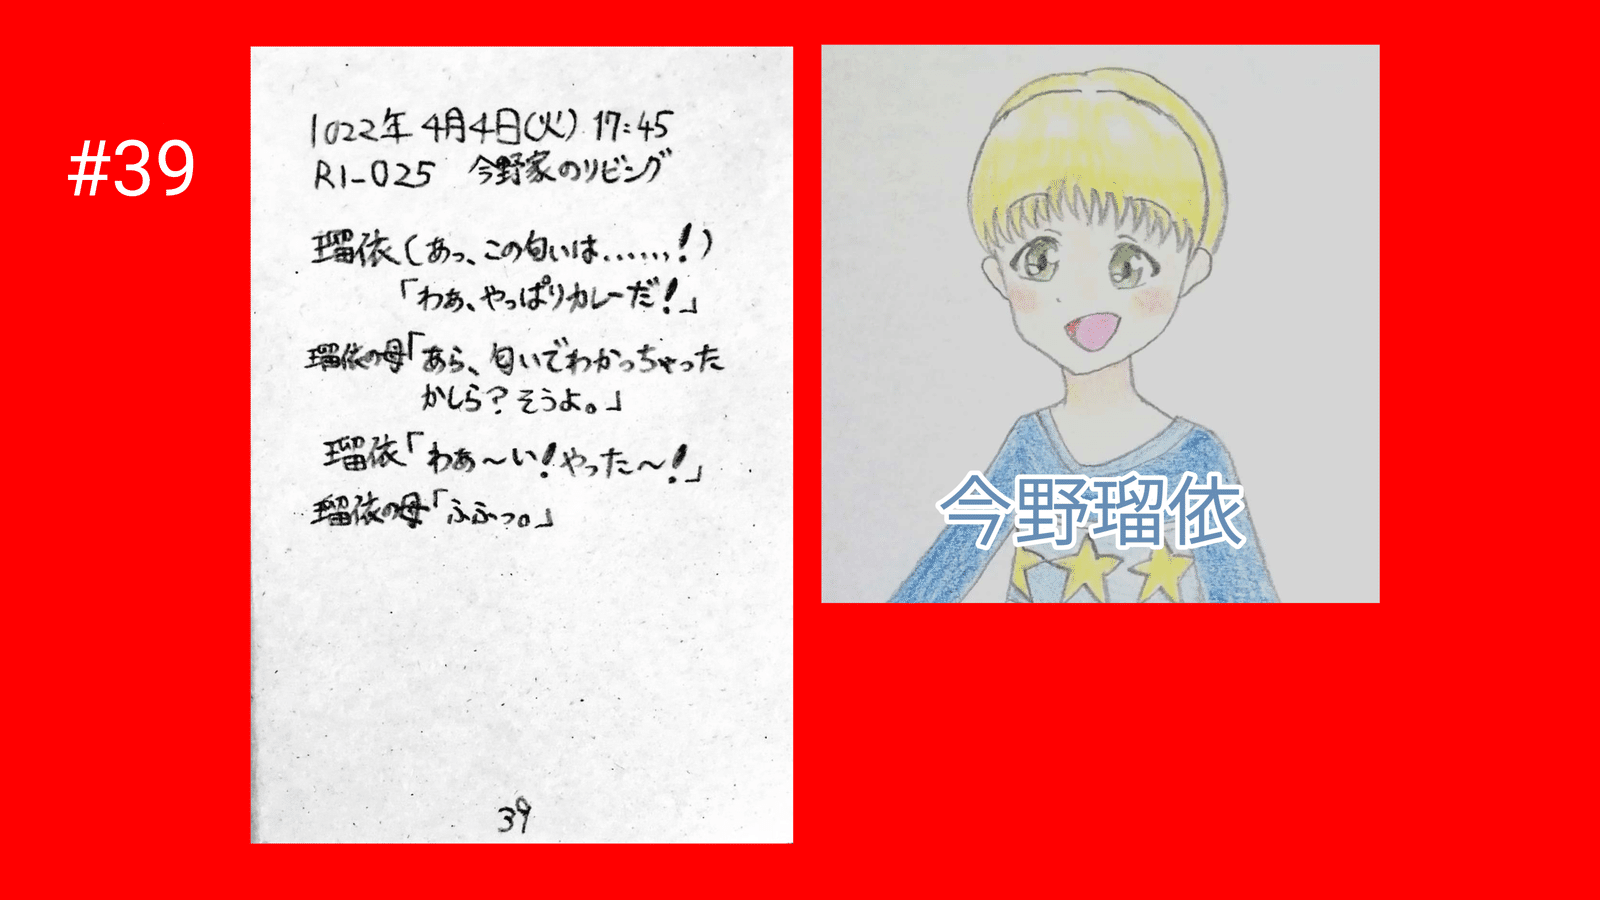 #39
1022年 4月4日(火) 17:45
R1-025 今野家のリビング
瑠依(あっ、この匂いは……!)
「わぁ、やっぱりカレーだ!」
瑠依の母「あら、匂いでわかっちゃった
かしら?そうよ。」
瑠依「わぁ〜い!やった〜!」
瑠依の母「ふふっ。」
39
今野瑠依